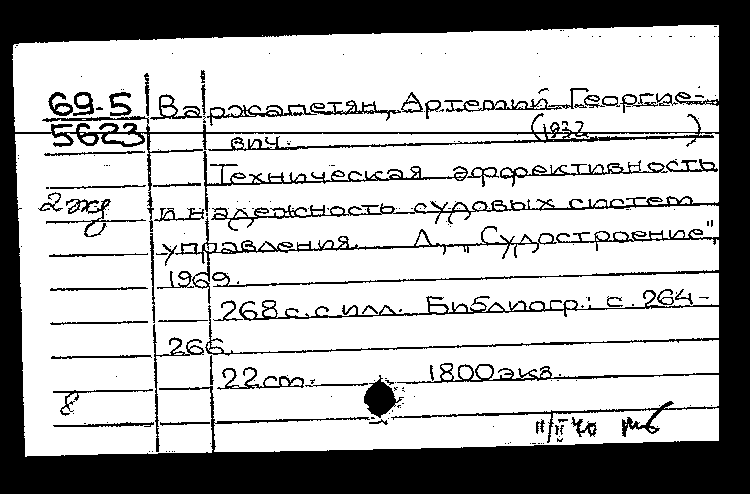 69-5 Варжапетян, Артемий Георгие-
5623 вич. (1932 )
Техническая эффективность
2 экз и надежность судовых систем
управления. Л., "Судостроение",
1969.
268 с. с илл. Библиогр.: с. 264-
266.
22 cm. 1800 экз.
8
11/II 70